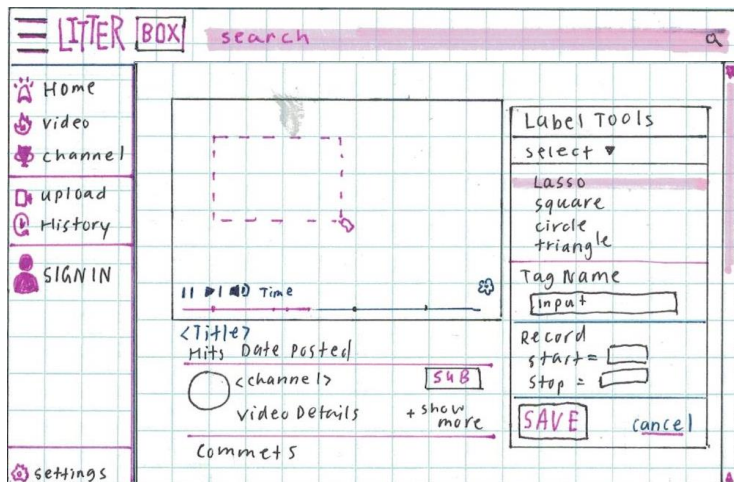 LITTER BOX search
Home
video
channel
upload
History
SIGN IN
settings
Time
<Title>
Hits Date Posted
<channel> SUB
Video Details + show more
Commets
Label Tools
select ▼
Lasso
square
circle
triangle
Tag Name
Input
Record
start =
stop =
SAVE cancel